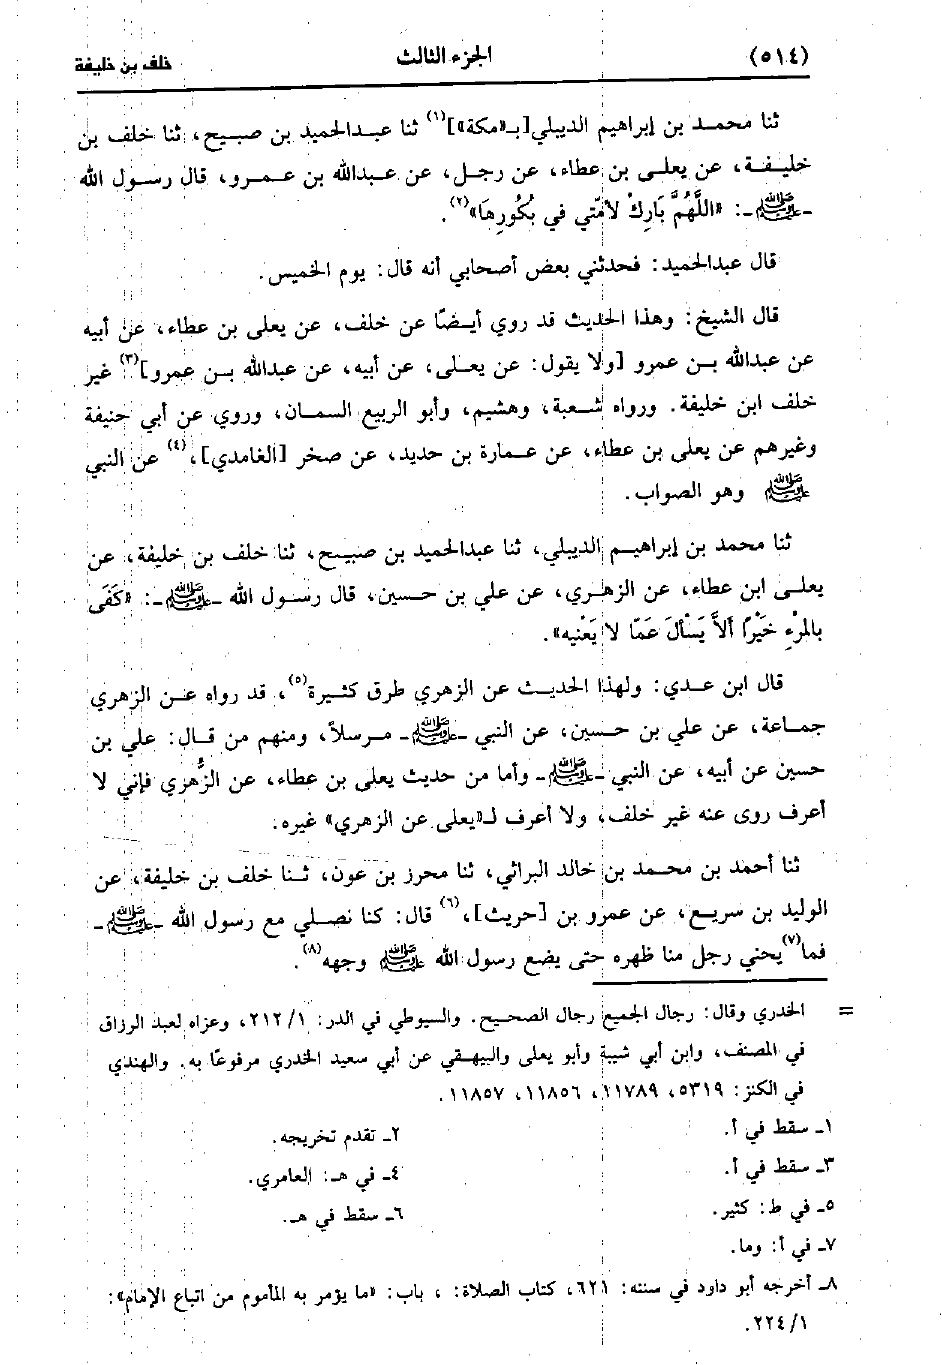 (٥١٤) الجزء الثالث خلف بن خليفة
ثنا محمد بن إبراهيم الديبلي[بـ«مكة»](١) ثنا عبدالحميد بن صبيح، ثنا خلف بن
خليفة، عن يعلى بن عطاء، عن رجل، عن عبدالله بن عمرو، قال رسول الله
-ﷺ-: «اللَّهُمَّ بَارِكْ لأُمَّتي في بُكُورِهَا»(٢).
قال عبدالحميد: فحدثني بعض أصحابي أنه قال: يوم الخميس.
قال الشيخ: وهذا الحديث قد روي أيضًا عن خلف، عن يعلى بن عطاء، عن أبيه
عن عبدالله بن عمرو [ولا يقول: عن يعلى، عن أبيه، عن عبدالله بن عمرو](٣) غير
خلف ابن خليفة. ورواه شعبة، وهشيم، وأبو الربيع السمان، وروي عن أبي حنيفة
وغيرهم عن يعلى بن عطاء، عن عمارة بن حديد، عن صخر [الغامدي]،(٤) عن النبي
ﷺ وهو الصواب.
ثنا محمد بن إبراهيم الديبلي، ثنا عبدالحميد بن صبيح، ثنا خلف بن خليفة، عن
يعلى ابن عطاء، عن الزهري، عن علي بن حسين، قال رسول الله -ﷺ-: «كَفَى
بالمَرْءِ خَيْرًا أَلاَّ يَسْأَلَ عَمَّا لا يَعْنيه».
قال ابن عدي: ولهذا الحديث عن الزهري طرق كثيرة(٥)، قد رواه عن الزهري
جماعة، عن علي بن حسين، عن النبي -ﷺ- مرسلاً، ومنهم من قال: علي بن
حسين عن أبيه، عن النبي -ﷺ- وأما من حديث يعلى بن عطاء، عن الزُّهري فإني لا
أعرف روى عنه غير خلف، ولا أعرف لـ«يعلى عن الزهري» غيره.
ثنا أحمد بن محمد بن خالد البراثي، ثنا محرز بن عون، ثنا خلف بن خليفة، عن
الوليد بن سريع، عن عمرو بن [حريث]،(٦) قال: كنا نصلي مع رسول الله -ﷺ-
فما(٧) يحني رجل منا ظهره حتى يضع رسول الله ﷺ وجهه(٨).
= الخدري وقال: رجال الجميع رجال الصحيح. والسيوطي في الدر: ١/ ٢١٢، وعزاه لعبد الرزاق
في المصنف، وابن أبي شيبة وأبو يعلى والبيهقي عن أبي سعيد الخدري مرفوعًا به. والهندي
في الكنز: ٥٣١٩، ١١٧٨٩، ١١٨٥٦، ١١٨٥٧.
١ـ سقط في أ. ٢ـ تقدم تخريجه.
٣ـ سقط في أ. ٤ـ في هـ: العامري.
٥ـ في ط: كثير. ٦ـ سقط في هـ.
٧ـ في أ: وما.
٨ـ أخرجه أبو داود في سننه: ٦٢١، كتاب الصلاة: ، باب: «ما يؤمر به المأموم من اتباع الإمام»:
١/ ٢٢٤.